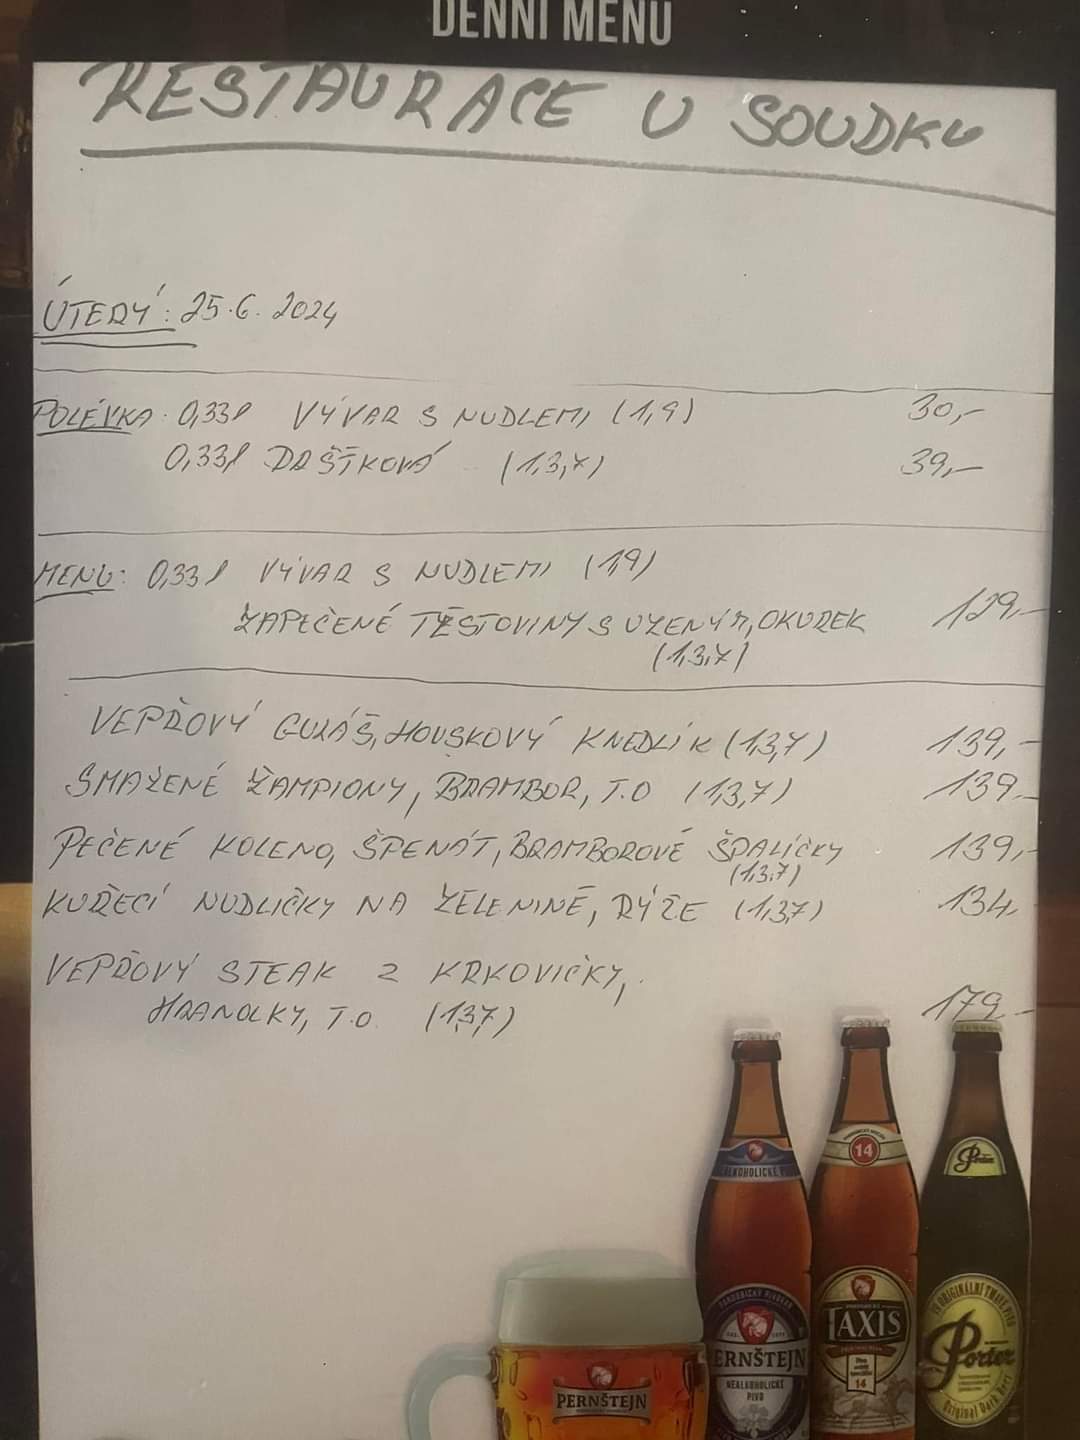 DENNÍ MENU
RESTAURACE U SOUDKU
ÚTERÝ: 25.6. 2024
POLÉVKA: 0,33l VÝVAR S NUDLEMI (1,9) 30,-
0,33l DRŠŤKOVÁ (1,3,7) 39,-
MENU: 0,33l VÝVAR S NUDLEMI (1,9)
ZAPEČENÉ TĚSTOVINY S UZENÝM, OKUREK 129,-
(1,3,7)
VEPŘOVÝ GULÁŠ, HOUSKOVÝ KNEDLÍK (1,3,7) 139,-
SMAŽENÉ ŽAMPIONY, BRAMBOR, T.O (1,3,7) 139,-
PEČENÉ KOLENO, ŠPENÁT, BRAMBOROVÉ ŠPALÍČKY 139,-
(1,3,7)
KUŘECÍ NUDLIČKY NA ZELENINĚ, RÝŽE (1,3,7) 134,-
VEPŘOVÝ STEAK Z KRKOVIČKY,
HRANOLKY, T.O. (1,3,7) 179,-
14
Porter
PERNŠTEJN
NEALKOHOLICKÉ
PIVO
TAXIS
14
Porter
Original Dark Beer
PERNŠTEJN